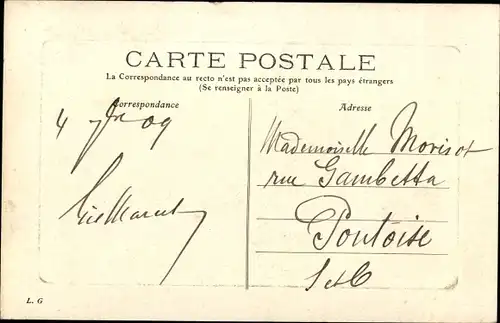 CARTE POSTALE
La Correspondance au recto n'est pas acceptée par tous les pays étrangers
(Se renseigner à la Poste)
Correspondance
Adresse
4 09
Mademoiselle Morisot
rue Gambetta
Pontoise
S et O
L. G